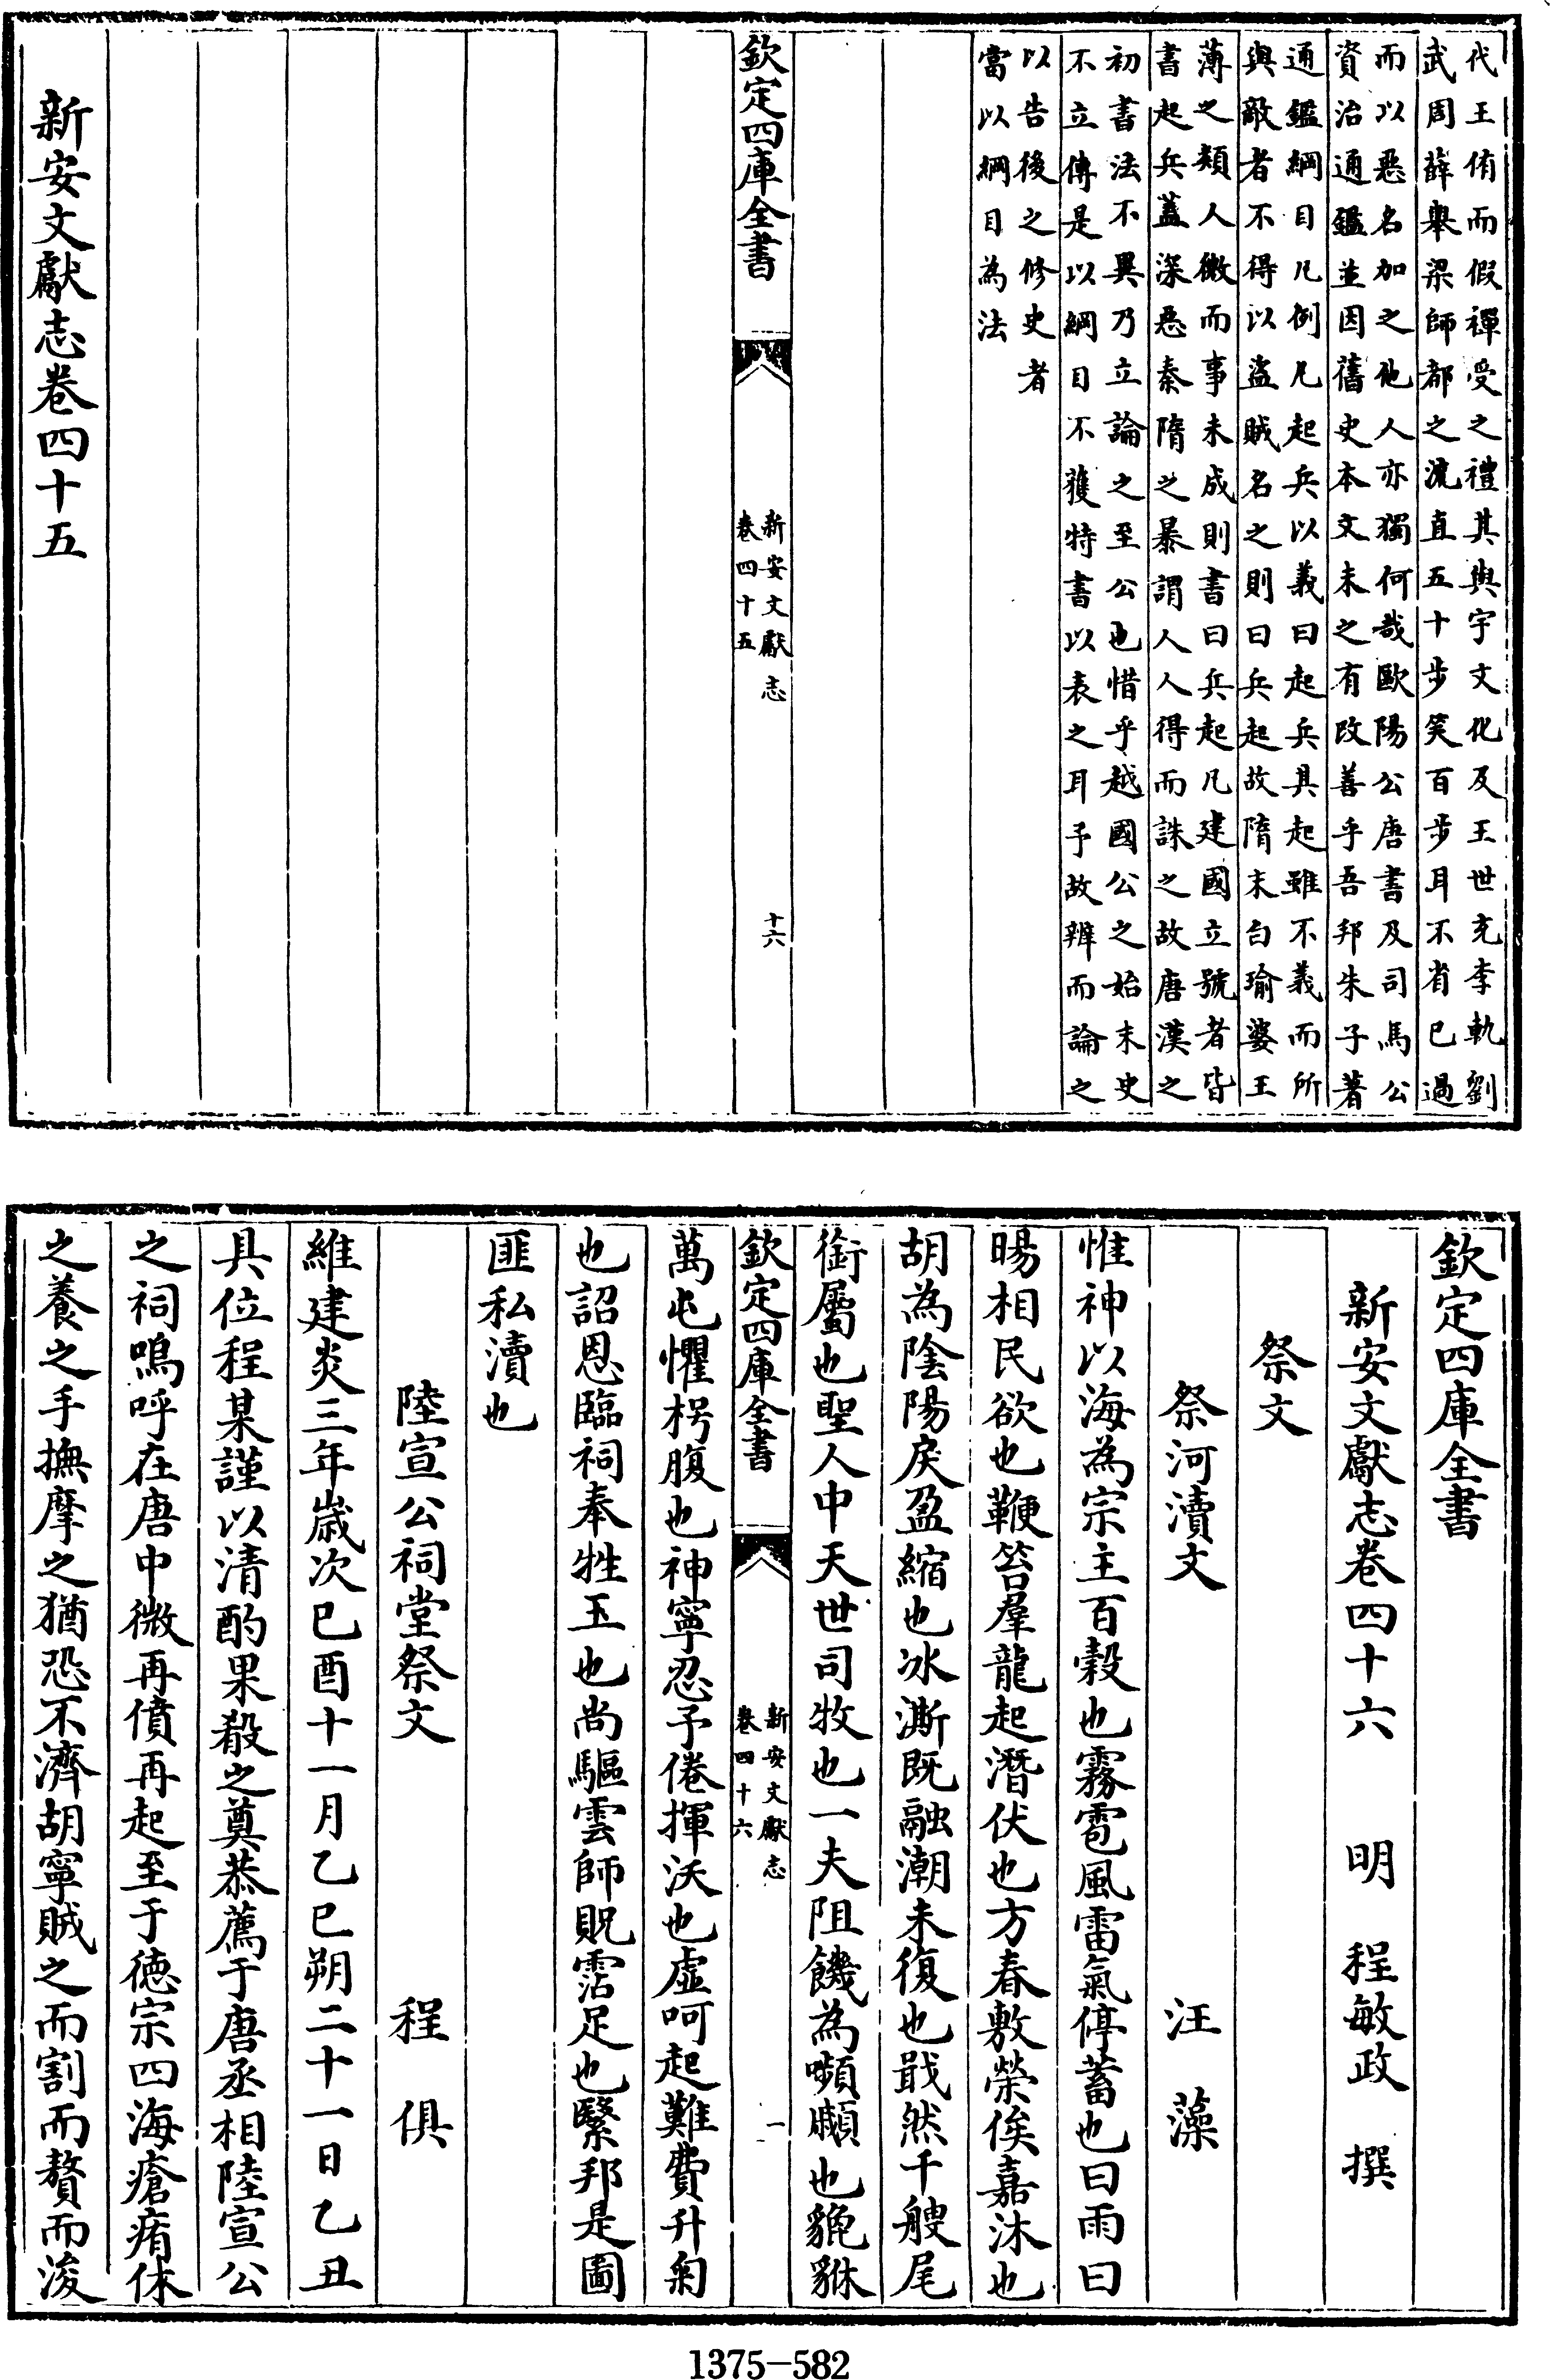 代王侑而假禪受之禮其與宇文化及王世充李軌劉
武周薛舉梁師都之流直五十步笑百步耳不省已過
而以惡名加之他人亦獨何哉歐陽公唐書及司馬公
資治通鑑並因舊史本文未之有改善乎吾邦朱子著
通鑑綱目凡例凡起兵以義曰起兵其起雖不義而所
與敵者不得以盜賊名之則曰兵起故隋末白瑜婆王
薄之類人微而事未成則書曰兵起凡建國立號者皆
書起兵蓋深惡秦隋之暴謂人人得而誅之故唐漢之
初書法不異乃立論之至公也惜乎越國公之始末史
不立傳是以綱目不獲特書以表之耳予故辨而論之
以告後之修史者
當以綱目為法
欽定四庫全書
新安文獻志
卷四十五
十六
新安文獻志卷四十五
欽定四庫全書
新安文獻志卷四十六 明 程敏政 撰
祭文
祭河瀆文 汪藻
惟神以海為宗主百穀也霧雹風雷氣停蓄也曰雨曰
暘相民欲也鞭笞羣龍起潛伏也方春敷榮俟嘉沐也
胡為陰陽戾盈縮也冰澌既融潮未復也戢然千艘尾
銜屬也聖人中天世司牧也一夫阻饑為嚬顣也貔貅
欽定四庫全書
新安文獻志
卷四十六
一
萬屯懼枵腹也神寧忍予倦揮沃也虛呵起難費升匊
也詔恩臨祠奉牲玉也尚驅雲師貺霑足也繄邦是圖
匪私瀆也
陸宣公祠堂祭文 程俱
維建炎三年歲次己酉十一月乙巳朔二十一日乙丑
具位程某謹以清酌果殽之奠恭薦于唐丞相陸宣公
之祠嗚呼在唐中微再僨再起至于德宗四海瘡痏休
之養之手撫摩之猶恐不濟胡寧賊之而割而贅而浚
1375-582